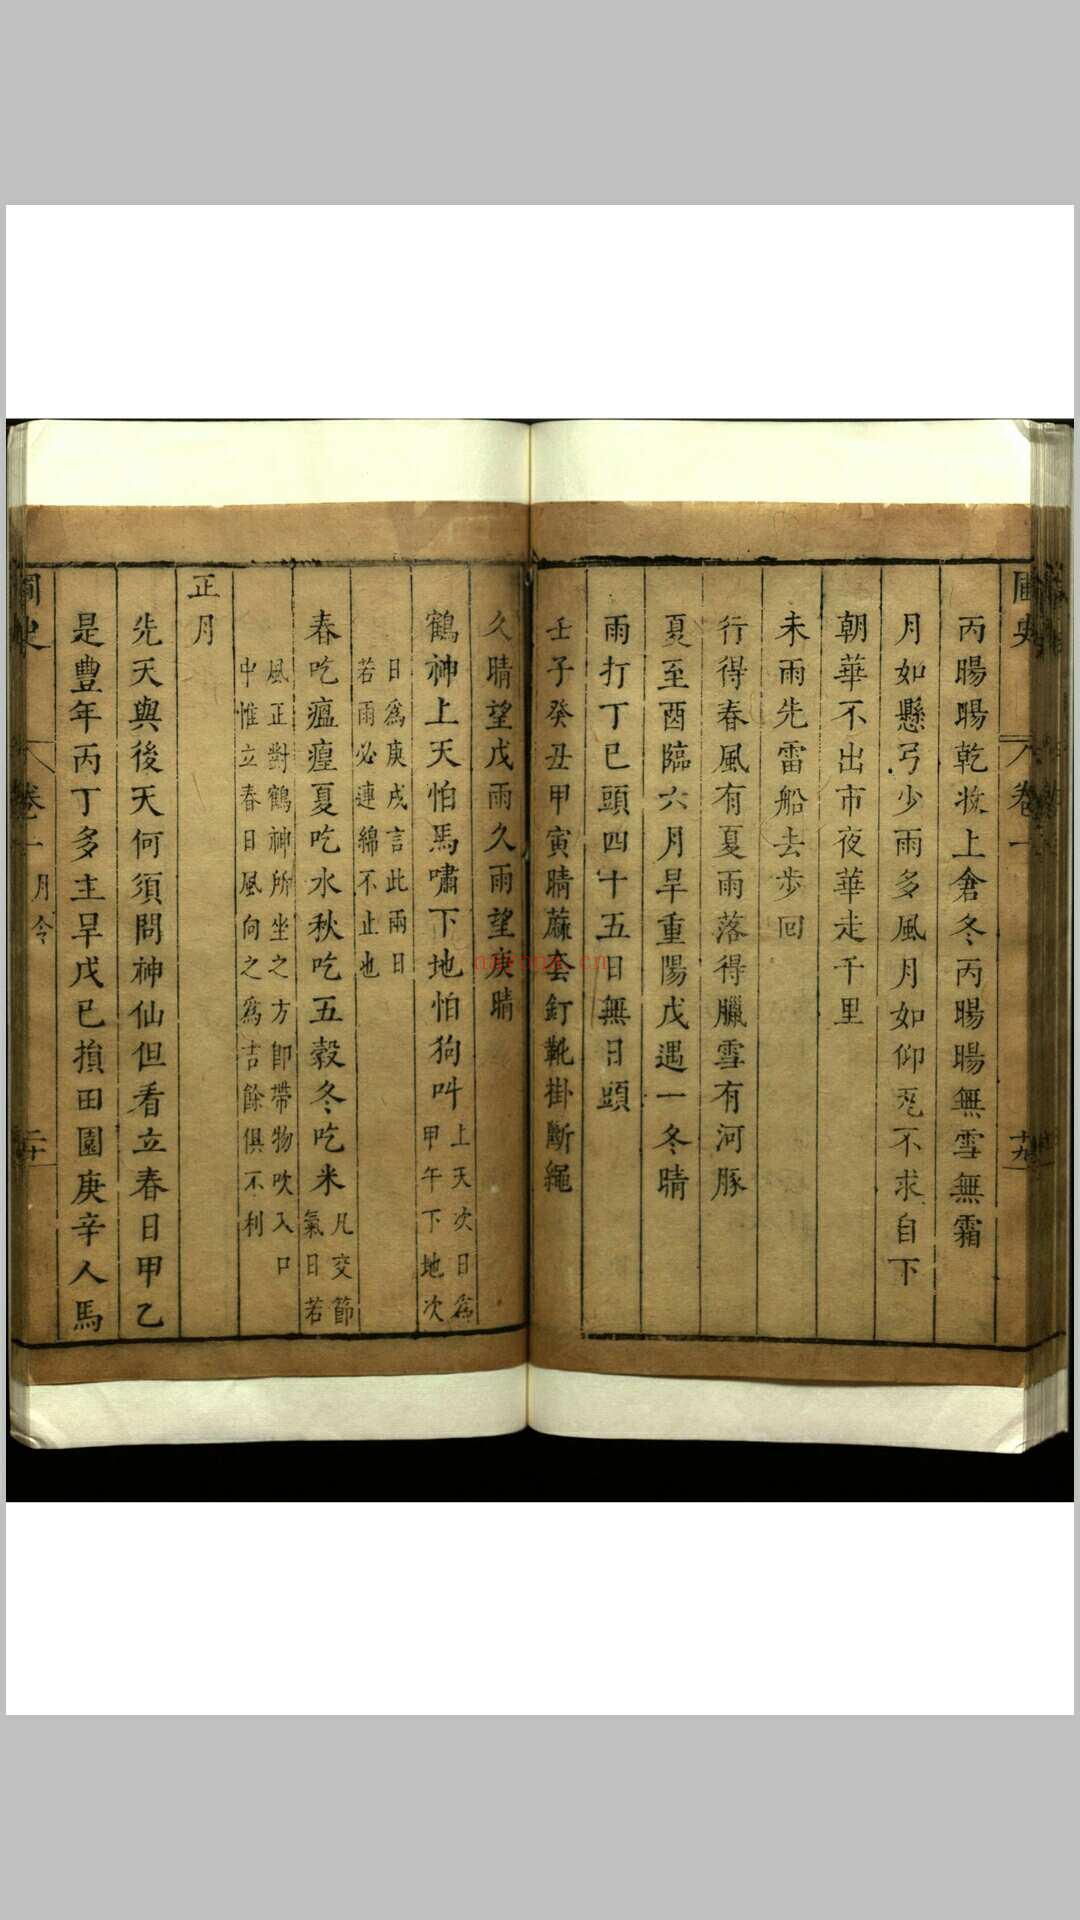 圃史 卷一 十九
丙暘暘乾妝上倉冬丙暘暘無雪無霜
月如懸弓少雨多風月如仰瓦不求自下
朝華不出市夜華走千里
未雨先雷船去步回
行得春風有夏雨落得臘雪有河豚
夏至酉臨六月旱重陽戊遇一冬晴
雨打丁巳頭四十五日無日頭
壬子癸丑甲寅晴蔴套釘靴掛斷繩
久晴望戊雨久雨望庚晴
鶴神上天怕馬嘯下地怕狗叫 上天次日爲 甲午下地次
日爲庚戌言此兩日
若雨必連綿不止也
春吃瘟瘽夏吃水秋吃五穀冬吃米 凡交節 氣日若
風正對鶴神所坐之方卽帶物吹入口
中惟立春日風向之爲吉餘俱不利
正月
先天與後天何須問神仙但看立春日甲乙
是豐年丙丁多主旱戊巳損田園庚辛人馬
卷一 月令 二十
nayona.cn